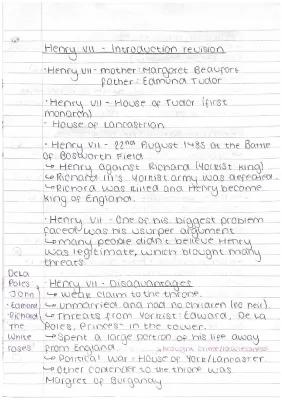 Henry VII - Introduction revision
· Henry VII - mother : Margaret Beaufort
father : Edmund Tudor
· Henry VII - House of Tudor (first
monarch)
- House of Lancastrian
· Henry VII - 22nd August 1485 at the Battle
of Bosworth Field
↳ Henry against Richard (Yorkist King)
↳ Richard III's Yorkist army was defeated
↳ Richard was killed and Henry become
King of England.
· Henry VII - One of his biggest problem
faced was his usurper argument
↳ many people didn't believe Henry
was legitimate, which brought many
threats
· Henry VII - Disadvantages
↳ weak claim to the throne.
↳ unmarried and had no children (no heir).
↳ Threats from Yorkist: Edward, De La
Poles, Princes in the tower.
↳ Spent a large portion of his life away
from England.
↳ Political war - House of York/Lancaster
↳ Other contender to the throne was
Margret of Burgandy
De La
Poles
John
Edmond
Richard
The
White
roses